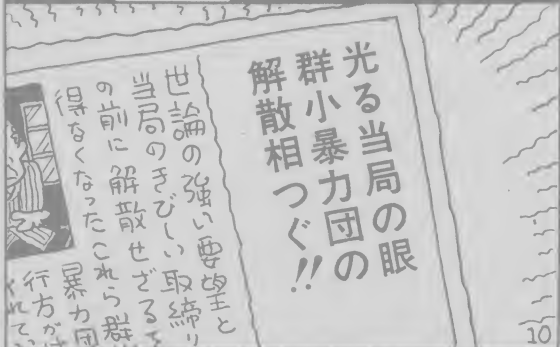 光る当局の眼
群小暴力団の
解散相つぐ!!
世論の強い要望と
当局のきびしい取締り
の前に解散せざるを
得なくなったこれら群
暴力団
行方が
れてい
10